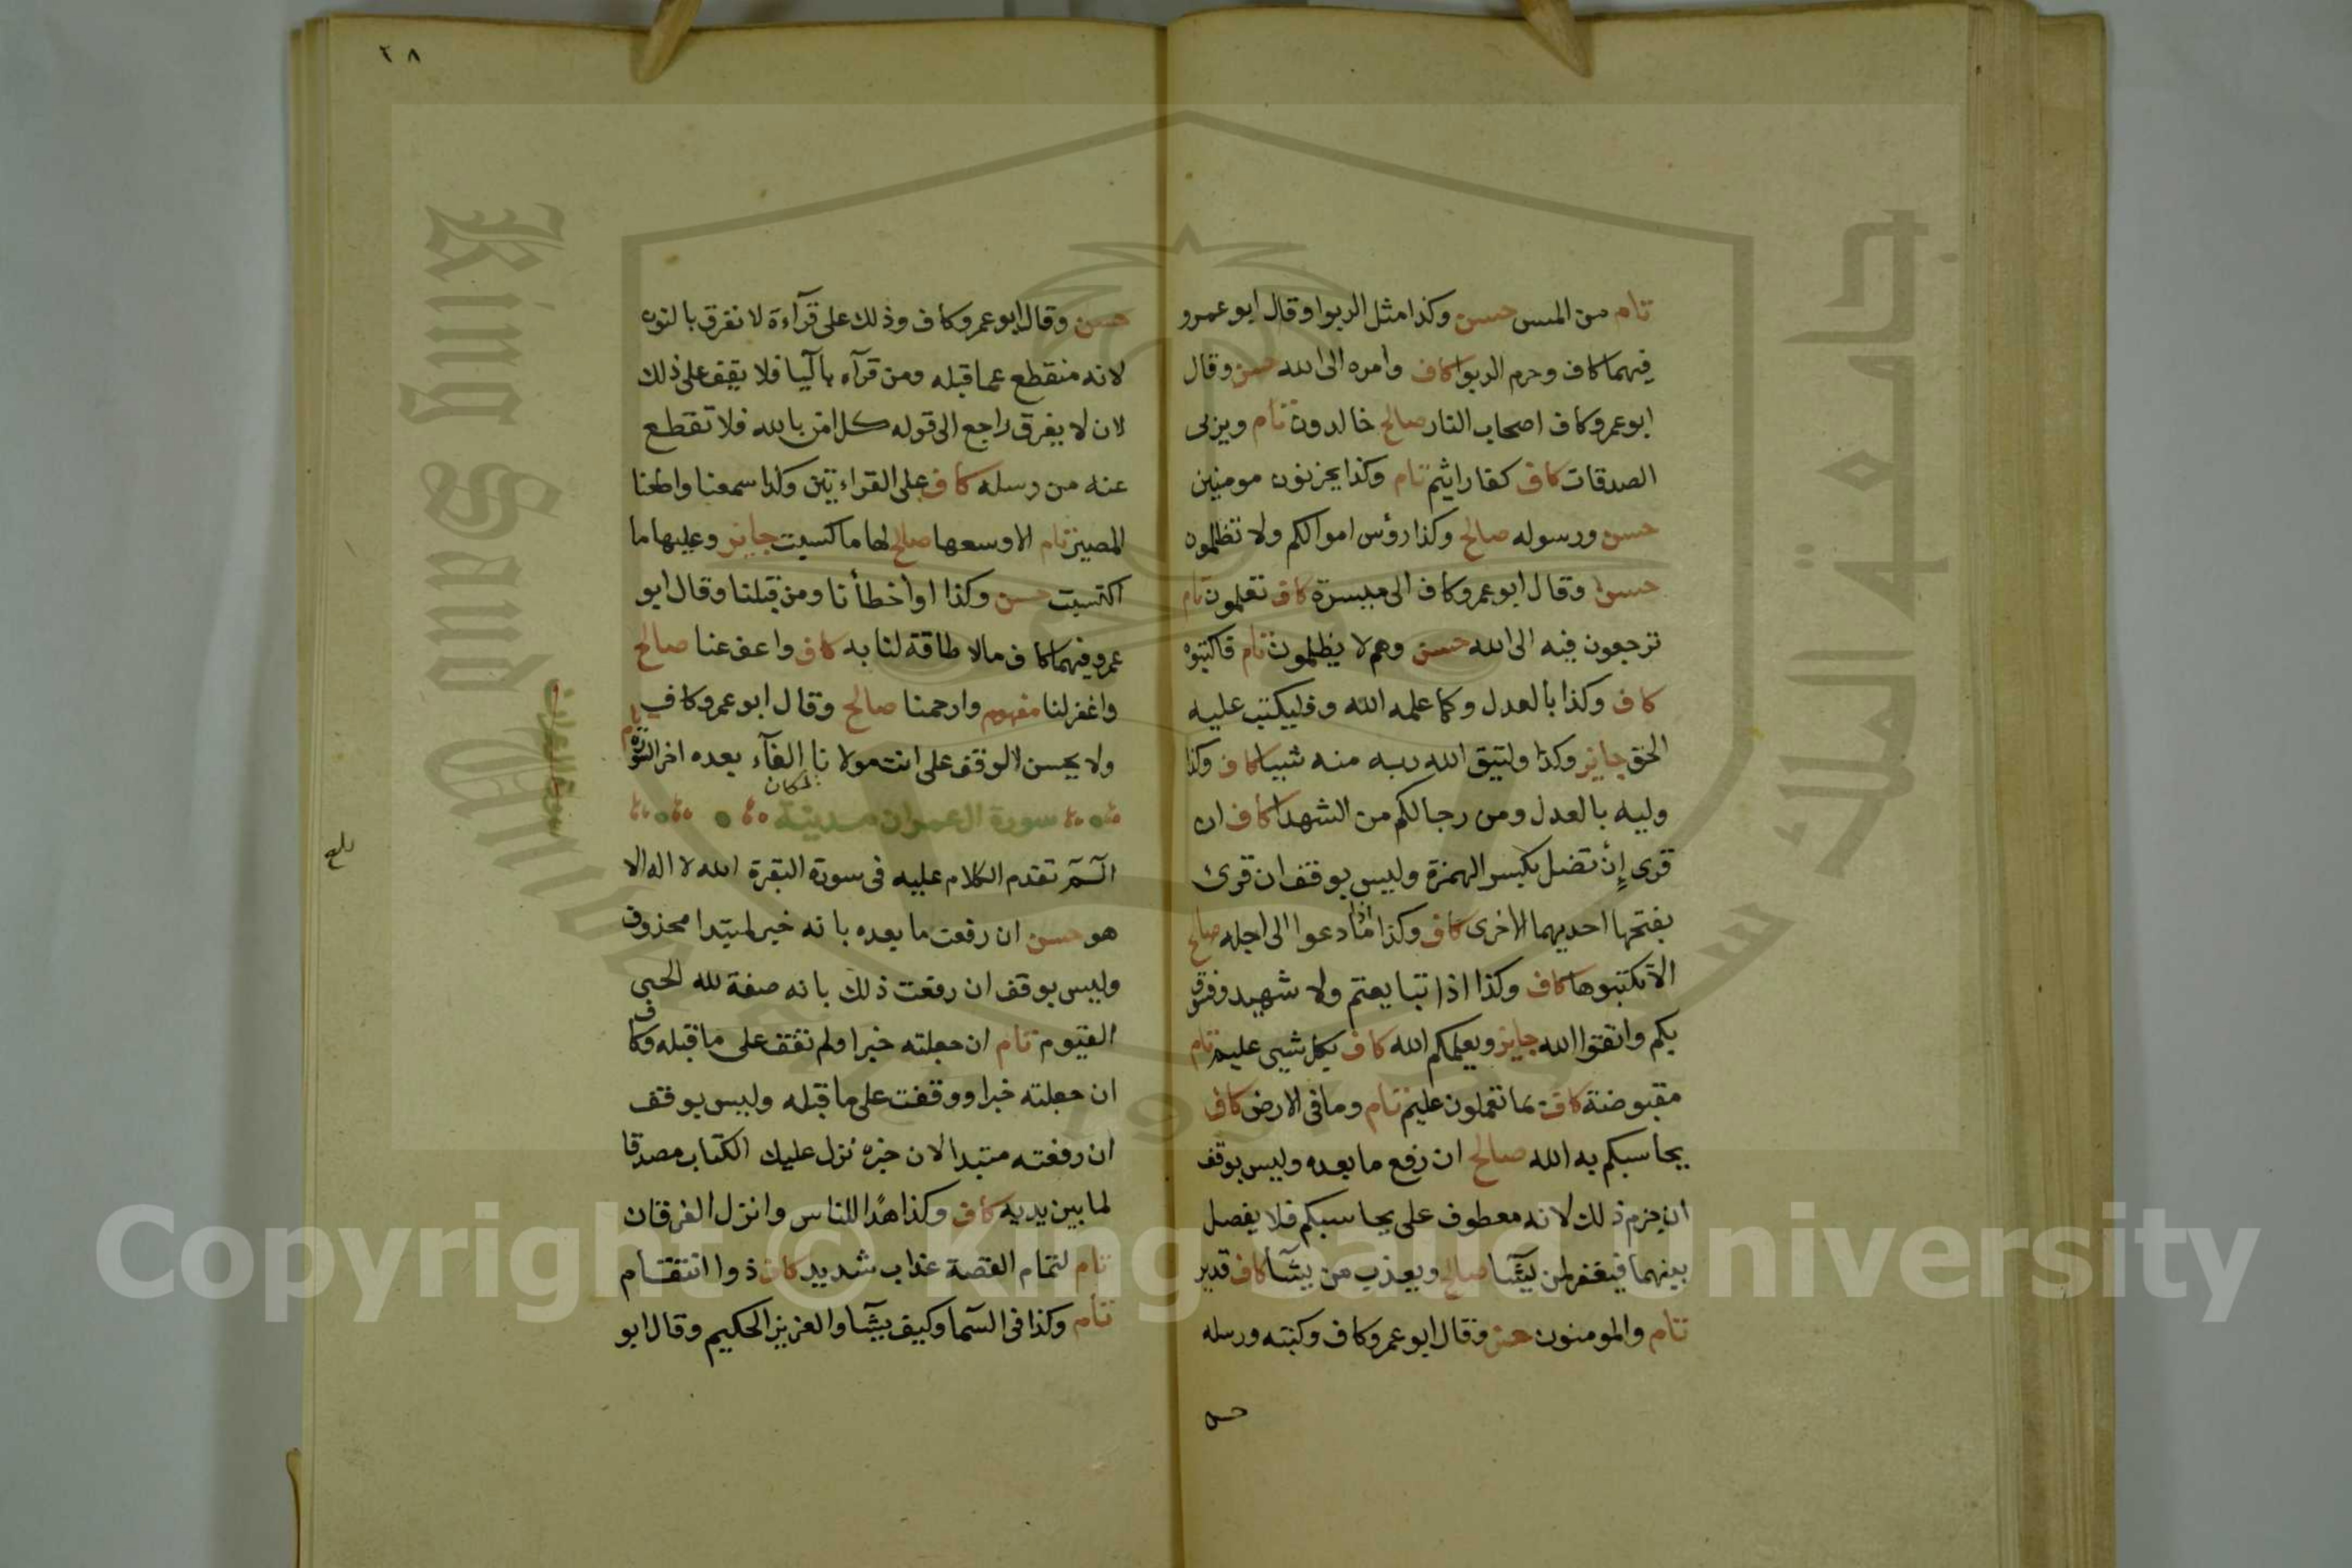 تام من المس حسن وكذا مثل الربوا وقال ابو عمرو
فيهما كاف وحرم الربوا كاف وامره الى الله حسن وقال
ابو عمرو كاف اصحاب النار صالح خالدون تام ويربى
الصدقات كاف كفار اثيم تام وكذا يحزنون مومنين
حسن ورسوله صالح وكذا رؤس اموالكم ولا تظلمون
حسن وقال ابو عمرو كاف الى ميسرة كاف تعلمون تام
ترجعون فيه الى الله حسن وهم لا يظلمون تام فاكتبوه
كاف وكذا بالعدل وكما علمه الله وفليكتب عليه
الحق جايز وكذا وليتق الله ربه منه شيا كاف وكذا
وليه بالعدل ومن رجالكم من الشهدا كاف ان
قرى إن تضل بكسر الهمزة وليس بوقف ان قرئ
بفتحها احديهما الاخرى كاف وكذا اذا ما دعوا الى اجله صالح
الا تكتبوها كاف وكذا اذا تبايعتم ولا شهيد وفسوق
بكم واتقوا الله جايز ويعلمكم الله كاف بكل شيى عليم تام
مقبوضة كاف بما تعملون عليم تام وما فى الارض كاف
يحاسبكم به الله صالح ان رفع ما بعده وليس بوقف
ان جزم ذلك لانه معطوف على يحاسبكم فلا يفصل
بينهما فيغفر لمن يشآ صالح ويعذب من يشآ كاف قدير
تام والمومنون حسن وقال ابو عمرو كاف وكتبه ورسله
حسن
٢٨
حسن وقال ابو عمرو كاف وذلك على قرآءة لا نفرق بالنون
لانه منقطع عما قبله ومن قرآه باليا فلا يقف على ذلك
لان لا يفرق راجع الى قوله كل امن بالله فلا تقطع
عنه من رسله كاف على القراءتين وكذا سمعنا واطعنا
المصير تام الا وسعها صالح لها ما كسبت جايز وعليها ما
اكتسبت حسن وكذا او اخطأنا ومن قبلنا وقال ابو
عمرو فيهما كاف مالا طاقة لنا به كاف واعف عنا صالح
واغفر لنا مفهوم وارحمنا صالح وقال ابو عمرو كاف
ولا يحسن الوقف على انت مولانا لمكان الفآء بعده اخر السورة تام
سورة ال عمران مدنية
سورة ال عمران
الٓمٓ تقدم الكلام عليه فى سورة البقرة الله لا اله الا
هو حسن ان رفعت ما بعده بانه خبر لمبتدا محذوف
وليس بوقف ان رفعت ذلك بانه صفة لله الحى
القيوم تام ان جعلته خبرا ولم تقف على ما قبله وكاف
ان جعلته خبرا ووقفت على ما قبله وليس بوقف
ان رفعته مبتدا لان خبره نزل عليك الكتاب مصدقا
لما بين يديه كاف وكذا هدًا للناس وانزل الفرقان
تام لتمام القصة عذاب شديد كاف ذوا انتقام
تام وكذا فى السما وكيف يشآ والعزيز الحكيم وقال ابو
بلغ
جامعة الملك سعود
King Saud University
1957
Copyright © King Saud University